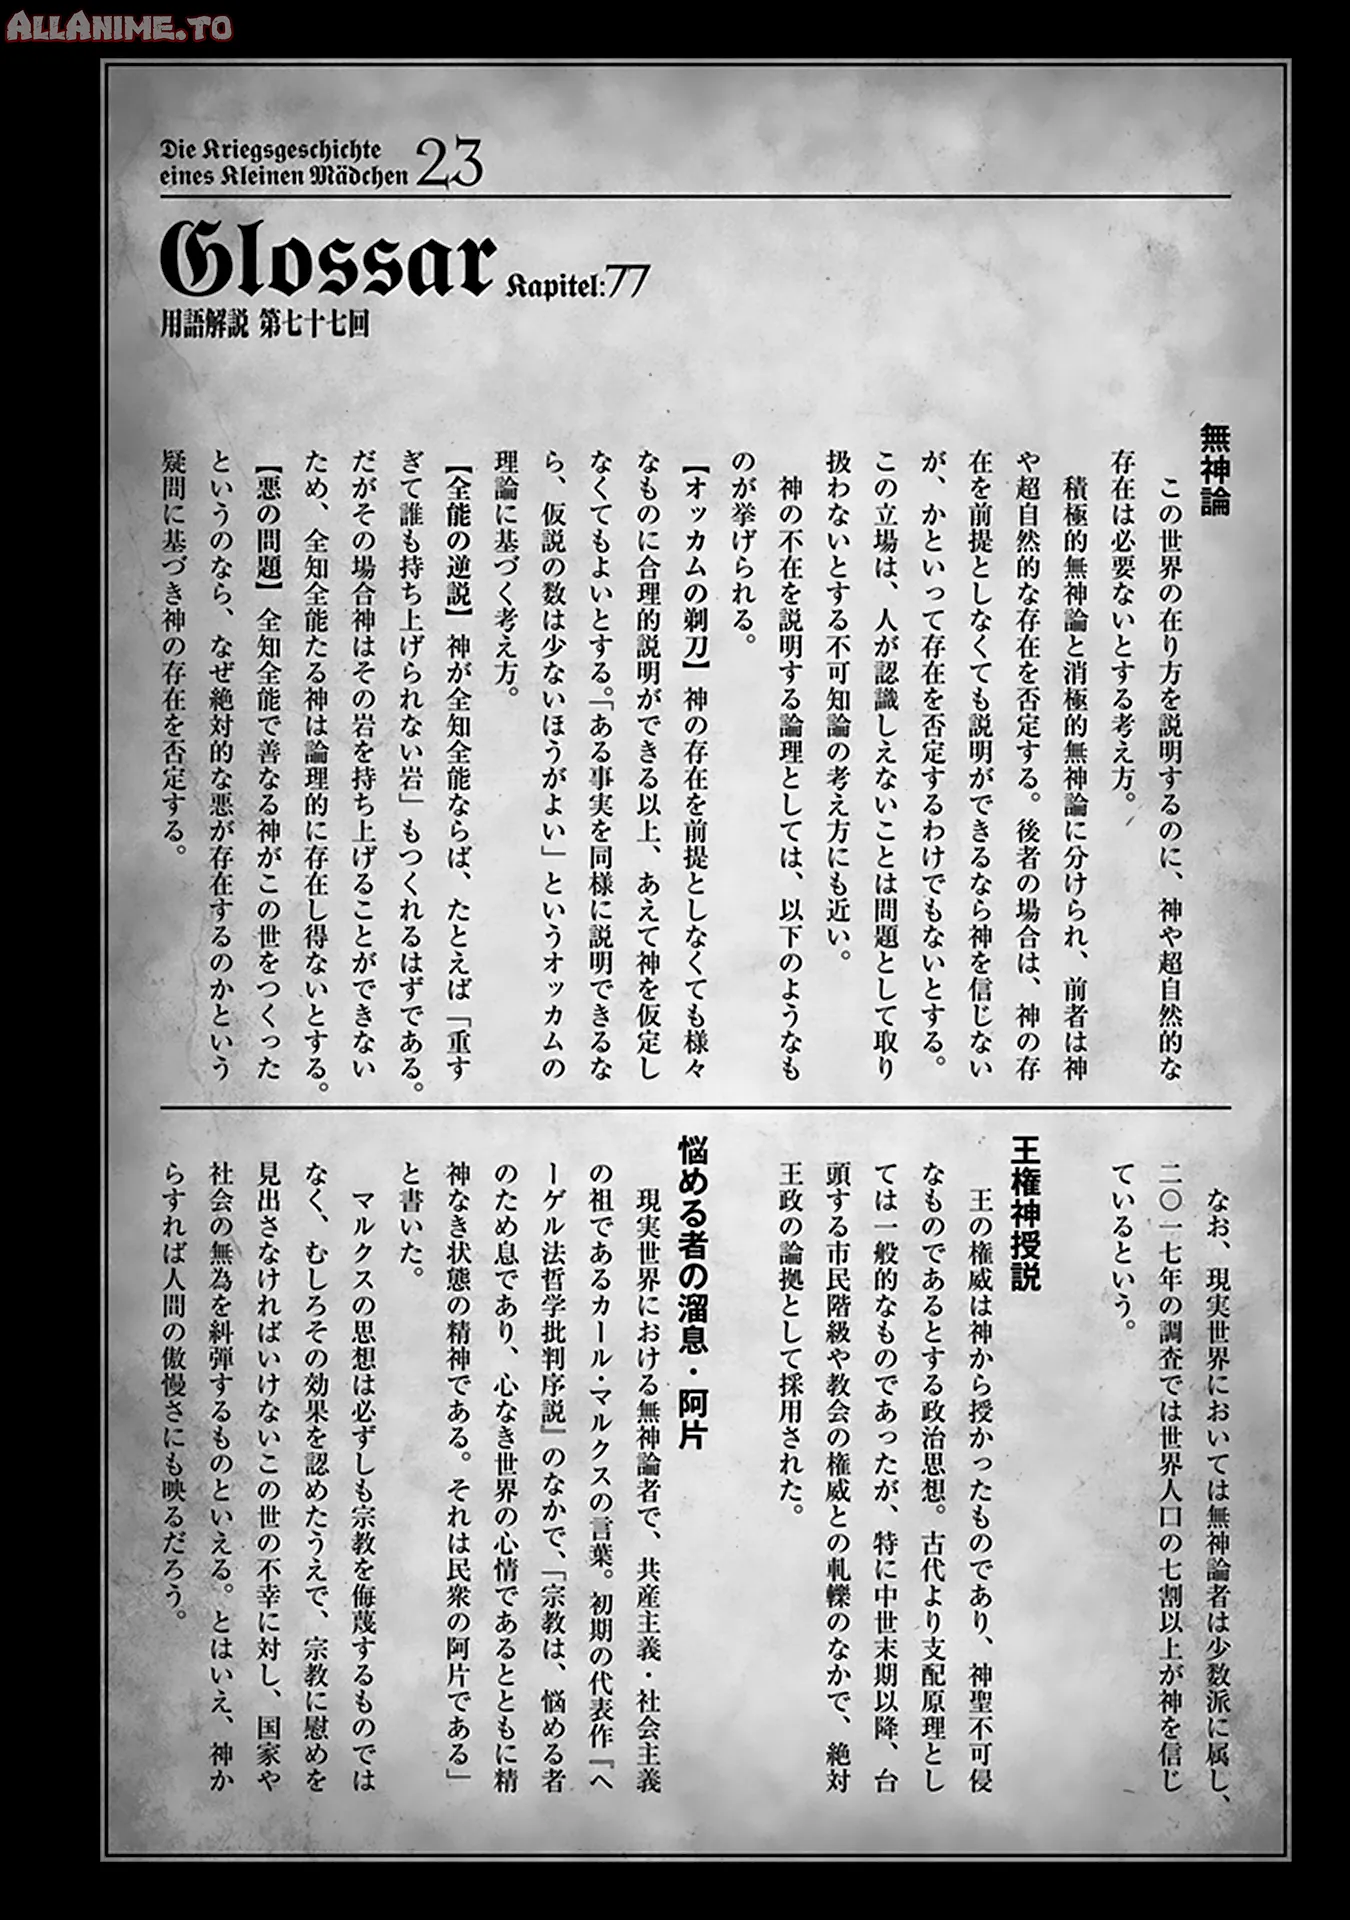 AllAnime.to
Die Kriegsgeschichte
eines Kleinen Mädchen 23
Glossar Kapitel:77
用語解説 第七十七回
無神論
この世界の在り方を説明するのに、神や超自然的な
存在は必要ないとする考え方。
積極的無神論と消極的無神論に分けられ、前者は神
や超自然的な存在を否定する。後者の場合は、神の存
在を前提としなくても説明ができるなら神を信じない
が、かといって存在を否定するわけでもないとする。
この立場は、人が認識しえないことは問題として取り
扱わないとする不可知論の考え方にも近い。
神の不在を説明する論理としては、以下のようなも
のが挙げられる。
【オッカムの剃刀】神の存在を前提としなくても様々
なものに合理的説明ができる以上、あえて神を仮定し
なくてもよいとする。「ある事実を同様に説明できるな
ら、仮説の数は少ないほうがよい」というオッカムの
理論に基づく考え方。
【全能の逆説】神が全知全能ならば、たとえば「重す
ぎて誰も持ち上げられない岩」もつくれるはずである。
だがその場合神はその岩を持ち上げることができない
ため、全知全能たる神は論理的に存在し得ないとする。
【悪の問題】全知全能で善なる神がこの世をつくった
というのなら、なぜ絶対的な悪が存在するのかという
疑問に基づき神の存在を否定する。
なお、現実世界においては無神論者は少数派に属し、
二〇一七年の調査では世界人口の七割以上が神を信じ
ているという。
王権神授説
王の権威は神から授かったものであり、神聖不可侵
なものであるとする政治思想。古代より支配原理とし
ては一般的なものであったが、特に中世末期以降、台
頭する市民階級や教会の権威との軋轢のなかで、絶対
王政の論拠として採用された。
悩める者の溜息・阿片
現実世界における無神論者で、共産主義・社会主義
の祖であるカール・マルクスの言葉。初期の代表作『ヘ
ーゲル法哲学批判序説』のなかで、「宗教は、悩める者
のため息であり、心なき世界の心情であるとともに精
神なき状態の精神である。それは民衆の阿片である」
と書いた。
マルクスの思想は必ずしも宗教を侮蔑するものでは
なく、むしろその効果を認めたうえで、宗教に慰めを
見出さなければいけないこの世の不幸に対し、国家や
社会の無為を糾弾するものといえる。とはいえ、神か
らすれば人間の傲慢さにも映るだろう。